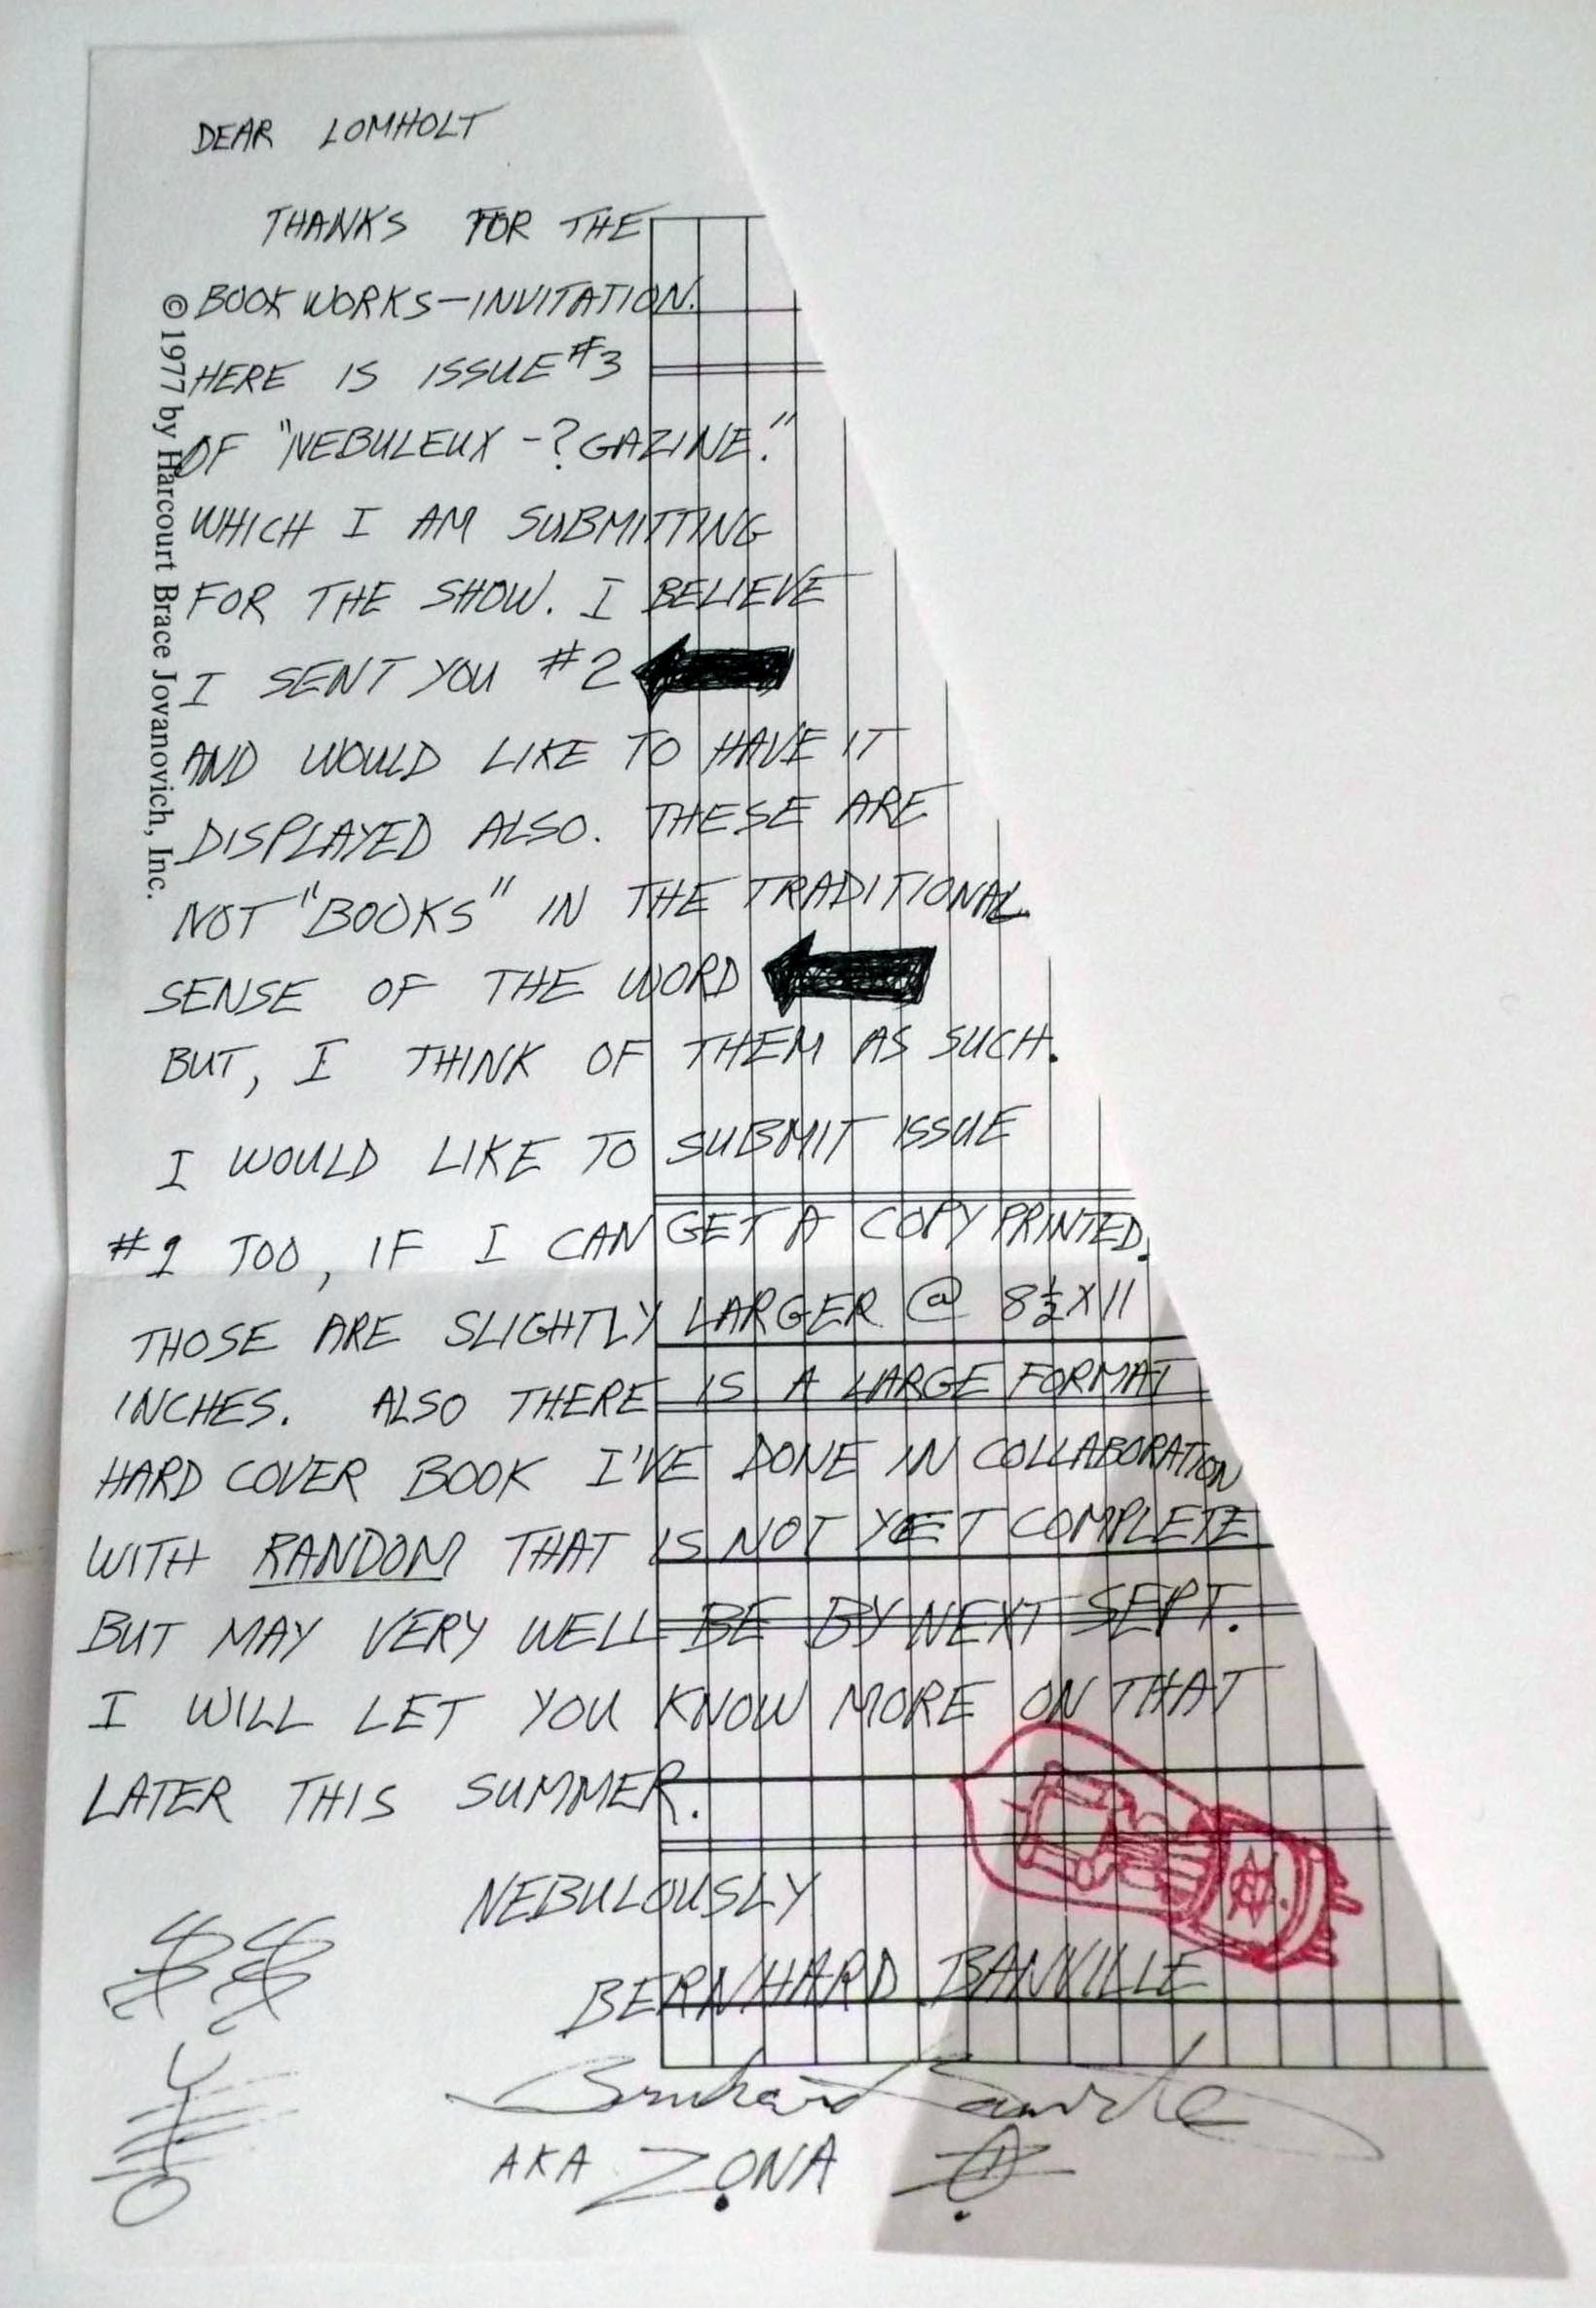 DEAR LOMHOLT
THANKS FOR THE
BOOK WORKS-INVITATION.
HERE IS ISSUE #3
OF "NEBULEUX -?GAZINE."
WHICH I AM SUBMITTING
FOR THE SHOW. I BELIEVE
I SENT YOU #2
AND WOULD LIKE TO HAVE IT
DISPLAYED ALSO. THESE ARE
NOT "BOOKS" IN THE TRADITIONAL
SENSE OF THE WORD
BUT, I THINK OF THEM AS SUCH.
I WOULD LIKE TO SUBMIT ISSUE
#1 TOO, IF I CAN GET A COPY PRINTED.
THOSE ARE SLIGHTLY LARGER @ 8½X11
INCHES. ALSO THERE IS A LARGE FORMAT
HARD COVER BOOK I'VE DONE IN COLLABORATION
WITH RANDOM THAT IS NOT YET COMPLETE
BUT MAY VERY WELL BE BY NEXT SEPT.
I WILL LET YOU KNOW MORE ON THAT
LATER THIS SUMMER.
NEBULOUSLY
BERNHARD BANVILLE
Bernhard Banville
AKA ZONA
© 1977 by Harcourt Brace Jovanovich, Inc.